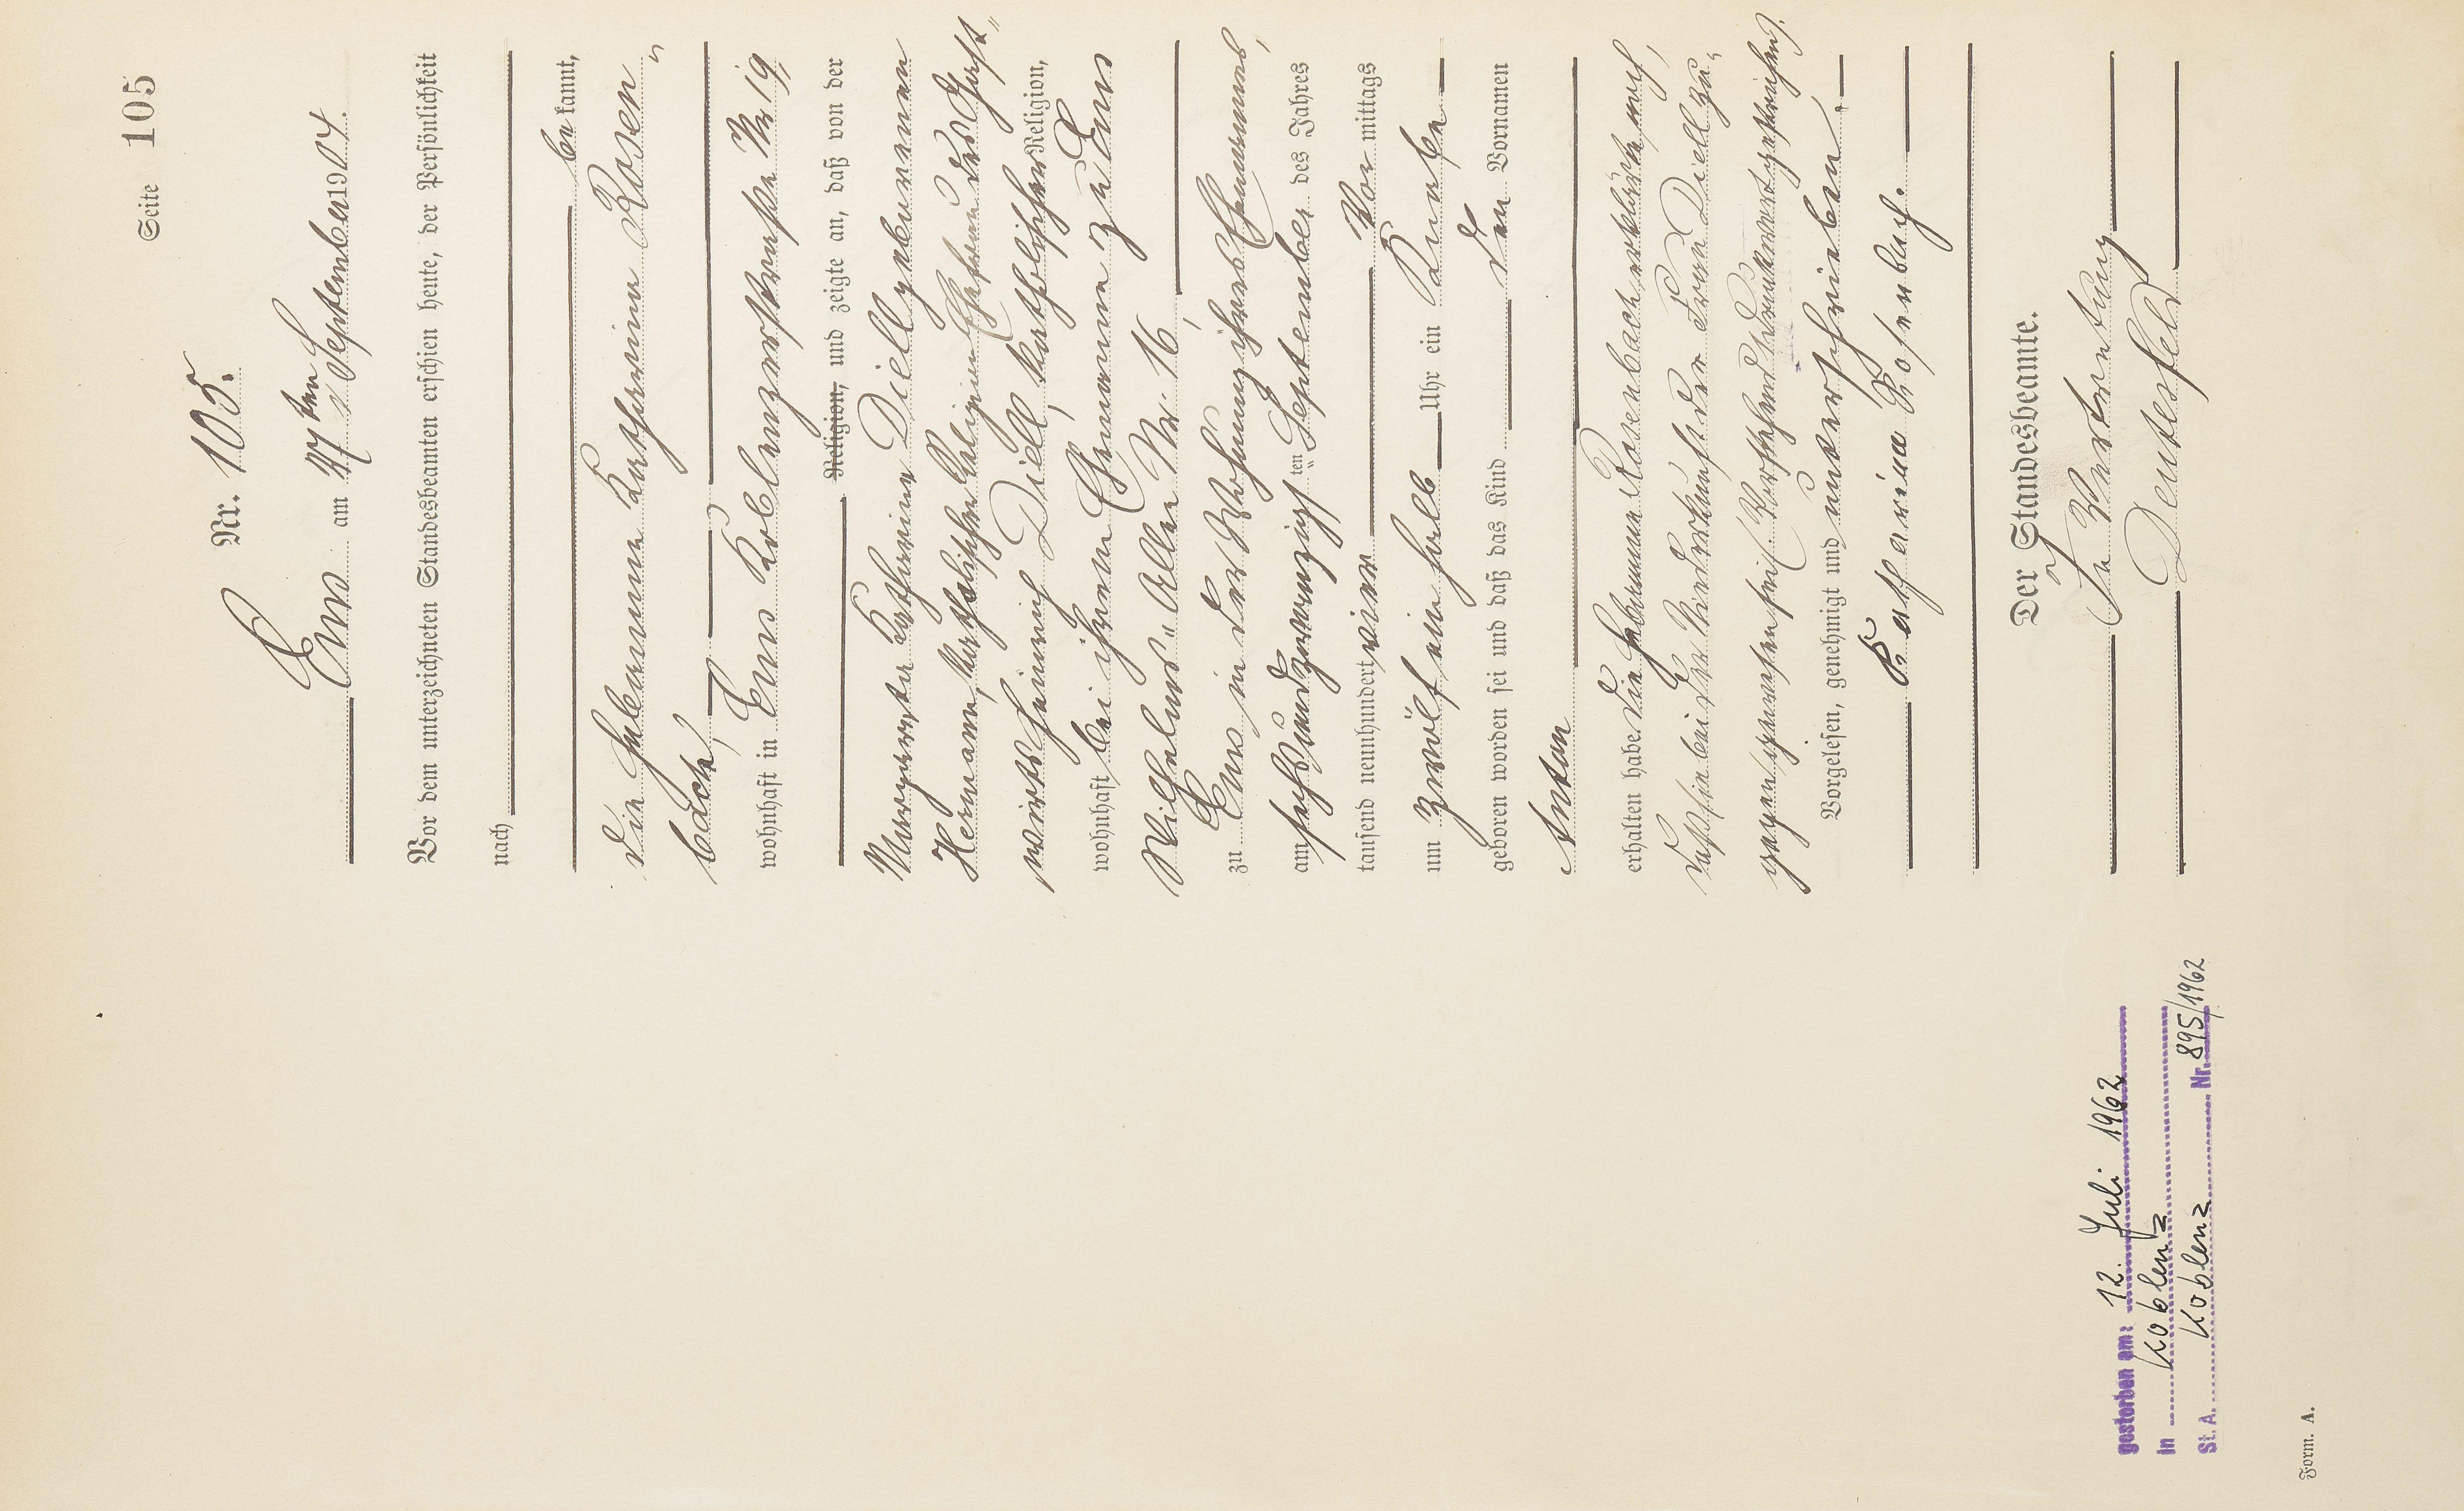 Seite 105
Nr. 105.
Ems am 27ten September 1904.
Vor dem unterzeichneten Standesbeamten erschien heute, der Persönlichkeit
nach
be kannt,
die Hebamme Katharina Rosen„
bach,
wohnhaft in Ems Koblenzerstraße Nr 19,
Religion, und zeigte an, daß von der
Margareta Katharina Diell geborenen
Hermann, katholischer Religion Ehefrau des Gast„
wirts Heinrich Diell, katholischer Religion,
wohnhaft bei ihrem Ehemanne zu Ems
Wilhelms„Allee Nr. 16,
zu Ems in der Wohnung ihres Ehemannes,
am sechsundzwanzigsten September des Jahres
tausend neunhundert vier Vor mittags
um zwölf ein halb Uhr ein Knabe
geboren worden sei und daß das Kind den Vornamen
Anton
erhalten habe. Die Hebamme Rosenbach erklärte auch,
daß sie bei der Niederkunft der Frau Diell zu„
gegen gewesen sei. (Vorstehend Druckwort gestrichen).
Vorgelesen, genehmigt und unterschrieben.
Katharina Rosenbach.
Der Standesbeamte.
In Vertretung
Deutesfeld
gestorben am: 12. Juli 1962
in Koblenz
St. A. Koblenz Nr. 895/1962
Form. A.